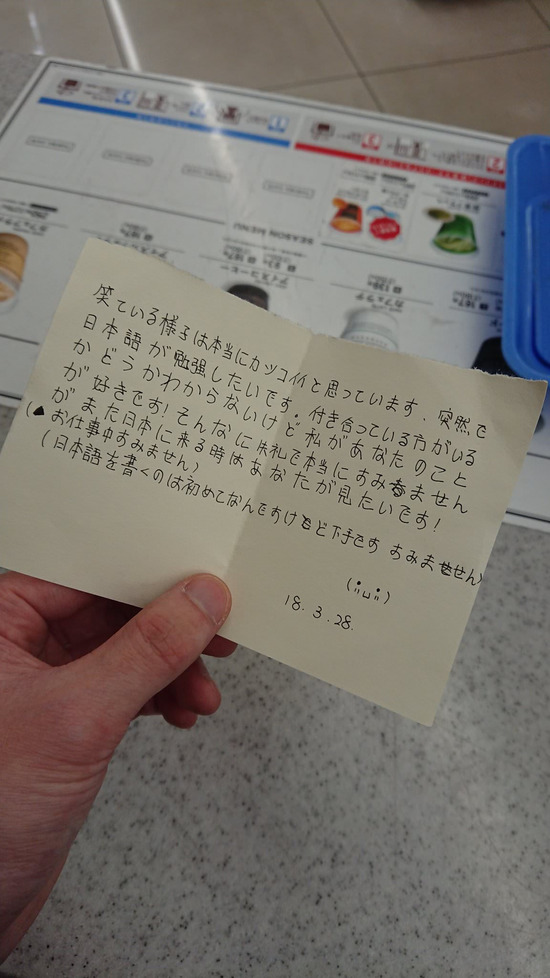 SEASON MENU
アイスコーヒー
カフェラテ
笑ている様子は本当にカッコイイと思っています. 突然で
日本語が勉強したいです. 付き合っている方がいる
かどうかわからないけど私があなたのこと
が好きです!そんなに失礼で本当にすみません
がまた日本に来る時はあなたが見たいです!
(お仕事中すみません)
(日本語を書くのは初めてなんですけど下手です すみません)
18. 3. 28.